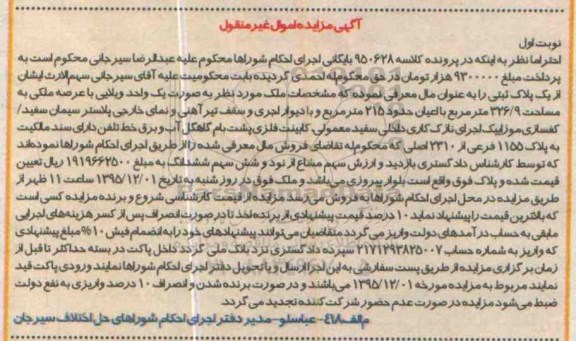 آگهی مزایده اموال غیر منقول
نوبت اول
احتراما نظر به اینکه در پرونده کلاسه ۹۵۰۶۲۸ بایگانی اجرای احکام شوراها محکوم علیه عبدالرضا سیرجانی محکوم است به
پرداخت مبلغ ۹۳۰۰۰۰۰ هزار تومان در حق محکوم له احمدی گردیده بابت محکومیت علیه آقای سیرجانی سهم الارث ایشان
از یک پلاک ثبتی را به عنوان مال معرفی نموده که مشخصات ملک مورد نظر به صورت یک واحد ویلایی با عرصه ملکی به
مساحت ۳۳۶/۹ متر مربع با اعیان حدود ۲۱۵ متر مربع و با دیوار آجری و سقف تیرآهنی و نمای خارجی پلاستر سیمان سفید/
کفسازی موزاییک اجرای نازک کاری داخلی سفید معمولی کابینت فلزی پشت بام کاهگل آب و برق خط تلفن دارای سند مالکیت
به پلاک ۱۱۵۵ فرعی از ۲۳۱۰ اصلی که محکوم له تقاضای فروش مال معرفی شده را از طریق اجرای احکام شوراها نموده اند
که توسط کارشناس دادگستری بازدید و ارزش سهم مشاع از نود و شش سهم ششدانگ به مبلغ ۱۹۱۹۶۶۲۵۰۰ ریال تعیین
قیمت شده و پلاک فوق واقع است بلوار پیروزی می باشد و ملک فوق در روز شنبه به تاریخ ۱۳۹۵/۱۲/۰۱ ساعت ۱۱ ظهر از
طریق مزایده در محل اجرای احکام شوراها به فروش می رسد مزایده از قیمت کارشناسی شروع و برنده مزایده کسی است
که بالاترین قیمت را پیشنهاد نماید ۱۰ درصد قیمت پیشنهادی از برنده اخذ تا در صورت انصراف پس از کسر هزینه های اجرایی
مابقی به حساب درآمدهای دولت واریز می گردد متقاضیان می توانند پیشنهادهای خود را به انضمام فیش ۱۰% مبلغ پیشنهادی
که واریز به شماره حساب ۲۱۷۱۲۹۳۸۲۵۰۰۷ سپرده دادگستری نزد بانک ملی گردد داخل پاکت در بسته حداکثر تا قبل از
زمان برگزاری مزایده از طریق پست سفارشی به این اجرا ارسال و یا تحویل دفتر اجرای احکام شوراها نمایند ورودی پاکت قید
نمایند مربوط به مزایده مورخه ۱۳۹۵/۱۲/۰۱ می باشند و در صورت برنده شدن و انصراف ۱۰ درصد واریزی به نفع دولت
ضبط می شود مزایده در صورت عدم حضور شرکت کننده تجدید می گردد.
م الف ۴۱۸- عباسلو- مدیر دفتر اجرای احکام شوراهای حل اختلاف سیرجان